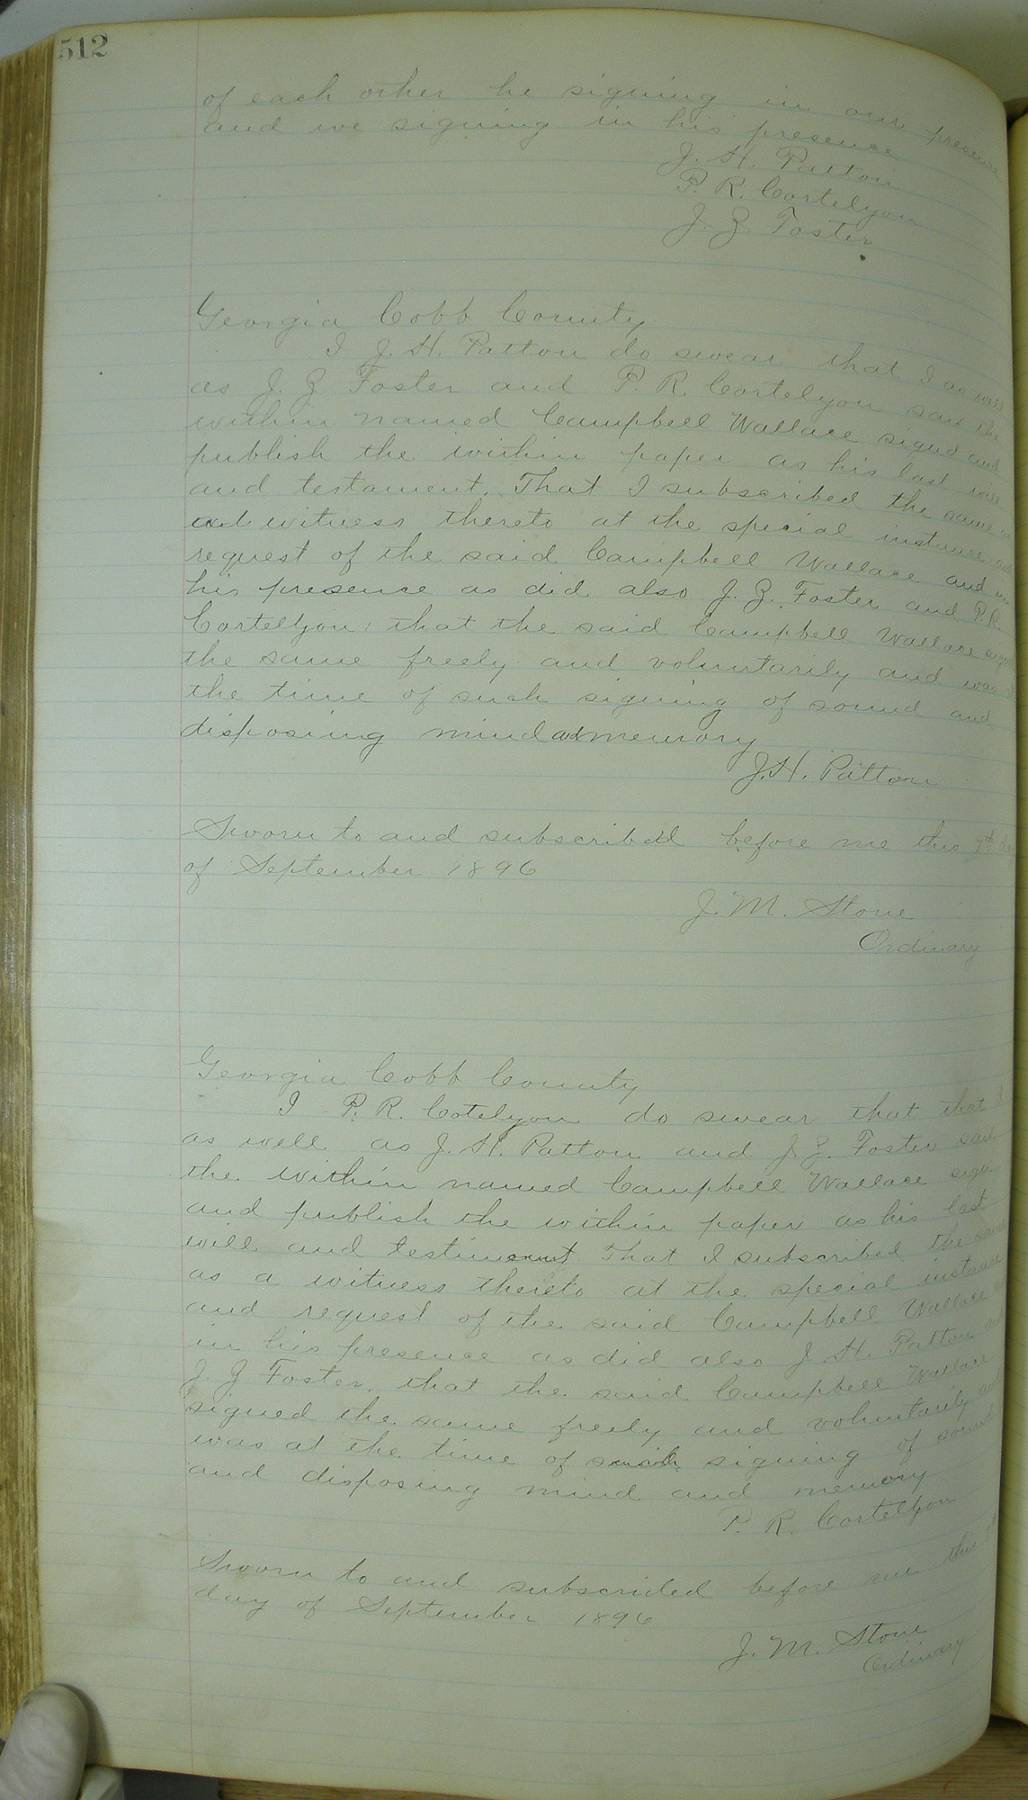 512
of each other he signing in our presence
and we signing in his presence
J. H. Patton
P. R. Cortelyou
J. Z. Foster
Georgia Cobb County
I J. H. Patton do swear that I as well
as J. Z Foster and P. R. Cortelyou saw the
within named Campbell Wallace signed and
publish the within paper as his last will
and testament. That I subscribed the same
witness thereto at the special instance and
request of the said Campbell Wallace and in
his presence as did also J. Z. Foster and P.R.
Cortelyou: that the said Campbell Wallace
the same freely and voluntarily and was
the time of such signing of sound and
disposing mind and memory
J. H. Patton
Sworn to and subscribed before me this 7th
of September 1896
J. M. Stone
Ordinary
Georgia Cobb County
I P. R. Cotelyou do swear that that I
as well as J. H. Patton and J. Z. Foster saw
the within named Campbell Wallace sign
and publish the within paper as his last
will and testiment That I subscribed the same
as a witness thereto at the special instance
and request of the said Campbell Wallace
in his presence as did also J H. Patton and
J. Z Foster, that the said Campbell Wallace
signed the same freely and voluntarily and
was at the time of such signing of sound
and disposing mind and memory
P. R. Cortelyou
Sworn to and subscrided before me this
day of September 1896
J. M. Stone
Ordinary